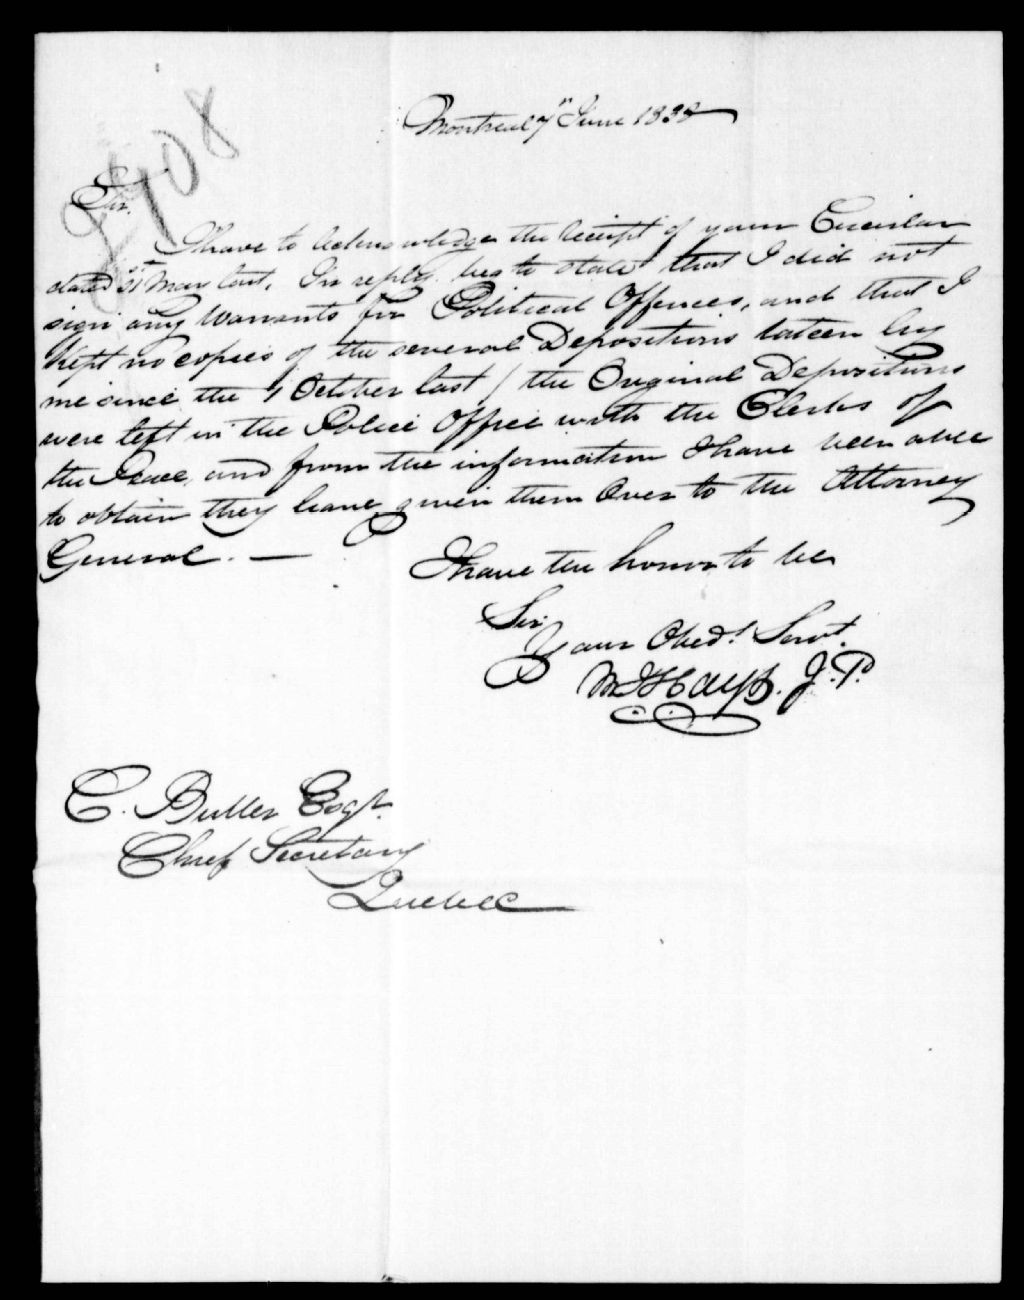 Montreal 7th June 1838
2408
Sir.
I have to acknowledge the receipt of your Circular
dated 31st May last, In reply beg to state that I did not
sign any Warrants for Political Offences, and that I
Kept no copies of the several Depositions taken by
me since the 1 October last / the Original Depositions
were left in the Police Office with the Clerks of
the Peace, and from the information I have been able
to obtain they have given them Over to the Attorney
General. —
I have the honor to be
Sir
Your Obedt. Servt.
Hays. J.P.
C. Buller Esqr.
Chief Secretary
Quebec